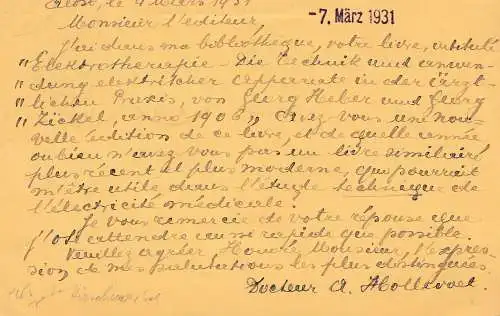 le 4 Mars 1931
- 7. März 1931
Monsieur l'editeur,
J'ai dans ma bibliothèque, votre livre, intitulé
"Elektrotherapie - Die Technik und anwen-
dung elektrischer Apperrate in der ärzt-
lichen Praxis, von Georg Heber und Georg
Zickel, anno 1906" Avez vous une nou-
velle édition de ce livre, et de quelle année
ou bien n'avez vous pas un livre similaire
plus récent et plus moderne, qui pourrait
m'être utile dans l'étude technique de
l'électricité médicale.
Je vous remercie de votre réponse que
j'ose attendre aussi rapide que possible.
Veuillez agréer, Honoré Monsieur, l'expres-
sion de mes salutations les plus distinguées.
Docteur A. Hollevoet